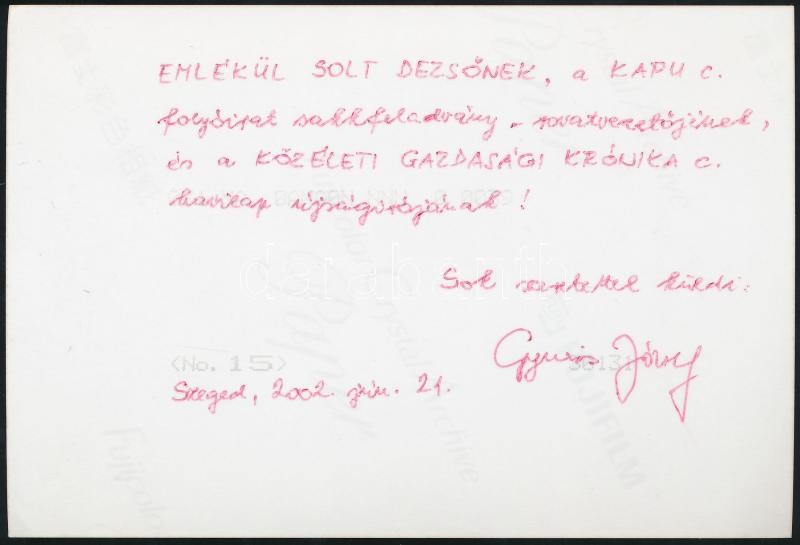 EMLÉKÜL SOLT DEZSŐNEK, a KAPU c.
folyóirat sakkfeladvány-rovatvezetőjének,
és a KÖZÉLETI GAZDASÁGI KRÓNIKA c.
havilap újságírójának!
Sok szeretettel küldi:
József
<No. 15>
Szeged, 2002. jún. 21.
darabanth
Fujicolor Crystal Archive
Paper
FUJIFILM